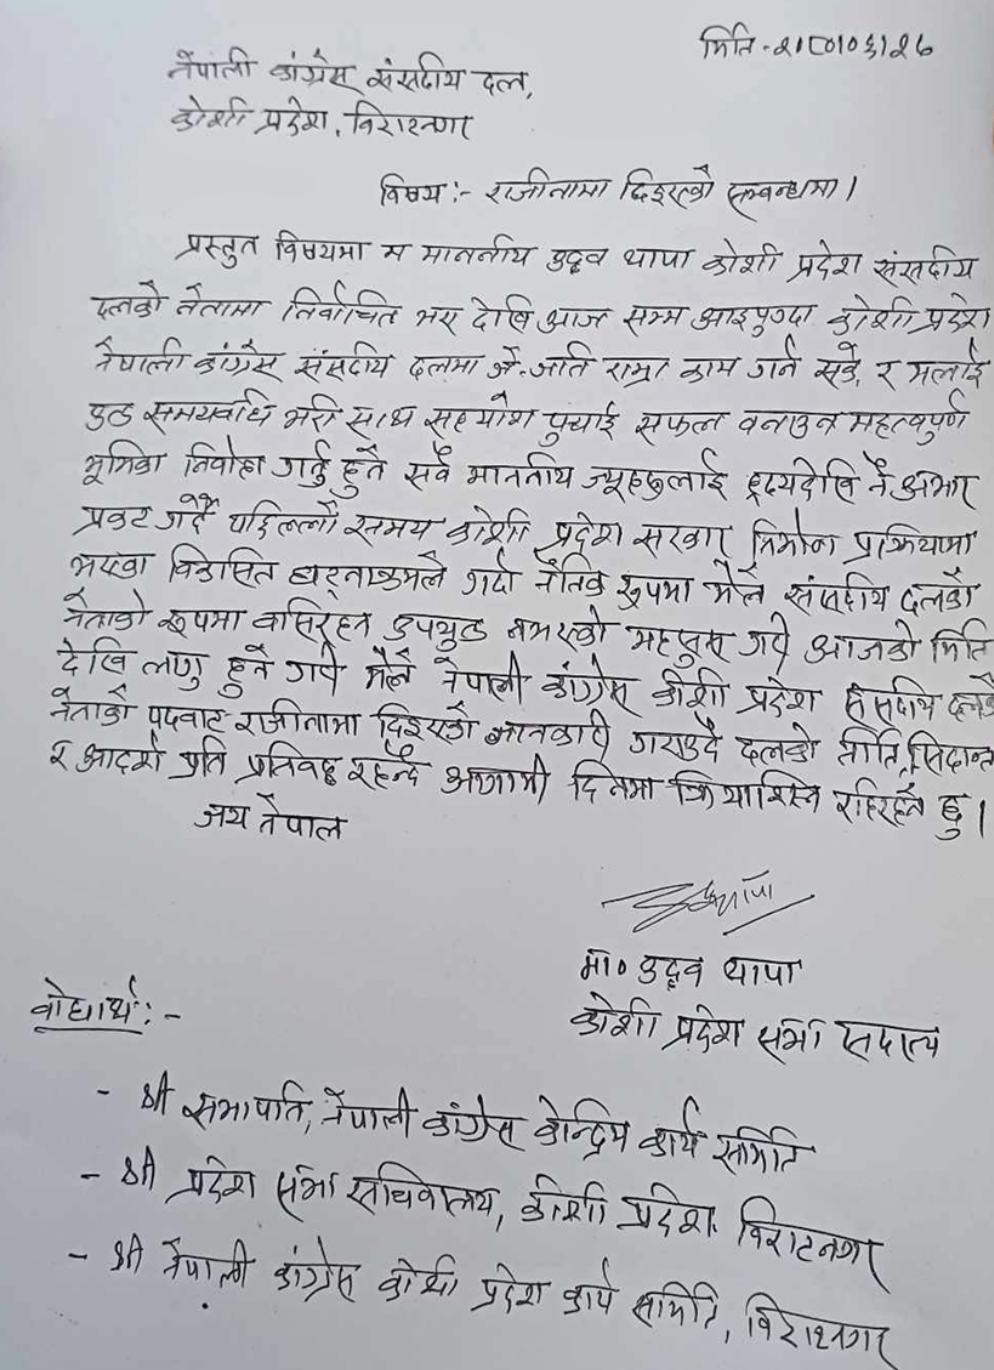 मिति - २०८०।०६।२६
नेपाली कांग्रेस संसदीय दल,
कोशी प्रदेश, विराटनगर
विषय :- राजीनामा दिइएको सम्बन्धमा ।
प्रस्तुत विषयमा म माननीय उद्धव थापा कोशी प्रदेश संसदीय
दलको नेतामा निर्वाचित भए देखि आज सम्म आइपुग्दा कोशी प्रदेश
नेपाली कांग्रेस संसदीय दलमा जे-जति राम्रा काम गर्न सके, र मलाई
समयावधि भरी साथ सहयोग पुर्याई सफल बनाउन महत्वपुर्ण
भूमिका निर्वाह गर्नु हुने सवै माननीय ज्यूहरुलाई ह्रदयदेखि नै आभार
प्रकट गर्दै पछिल्लो समय कोशी प्रदेश सरकार निर्माण प्रक्रियामा
भएका विकासित घटनाक्रमले गर्दा नैतिक रुपमा मैले संसदीय दलको
नेताको रुपमा वसिरहन उपयुक्त नभएको महसुस गरी आजको मिति
देखि लागु हुने गरी मैले नेपाली कांग्रेस कोशी प्रदेश संसदीय दलको
नेताको पदवाट राजीनामा दिइएको जानकारी गराउदै दलको नीति, सिदान्त
र आदर्श प्रति प्रतिवद्ध रहन्दै आगामी दिनमा क्रियाशिल रहिरहने छु ।
जय नेपाल
मा० उद्धव थापा
कोशी प्रदेश सभा सदस्य
वोधार्थ :-
- श्री सभापति, नेपाली कांग्रेस केन्द्रिय कार्य समिति
- श्री प्रदेश सभा सचिवालय, कोशी प्रदेश विराटनगर
- श्री नेपाली कांग्रेस कोशी प्रदेश कार्य समिति, विराटनगर